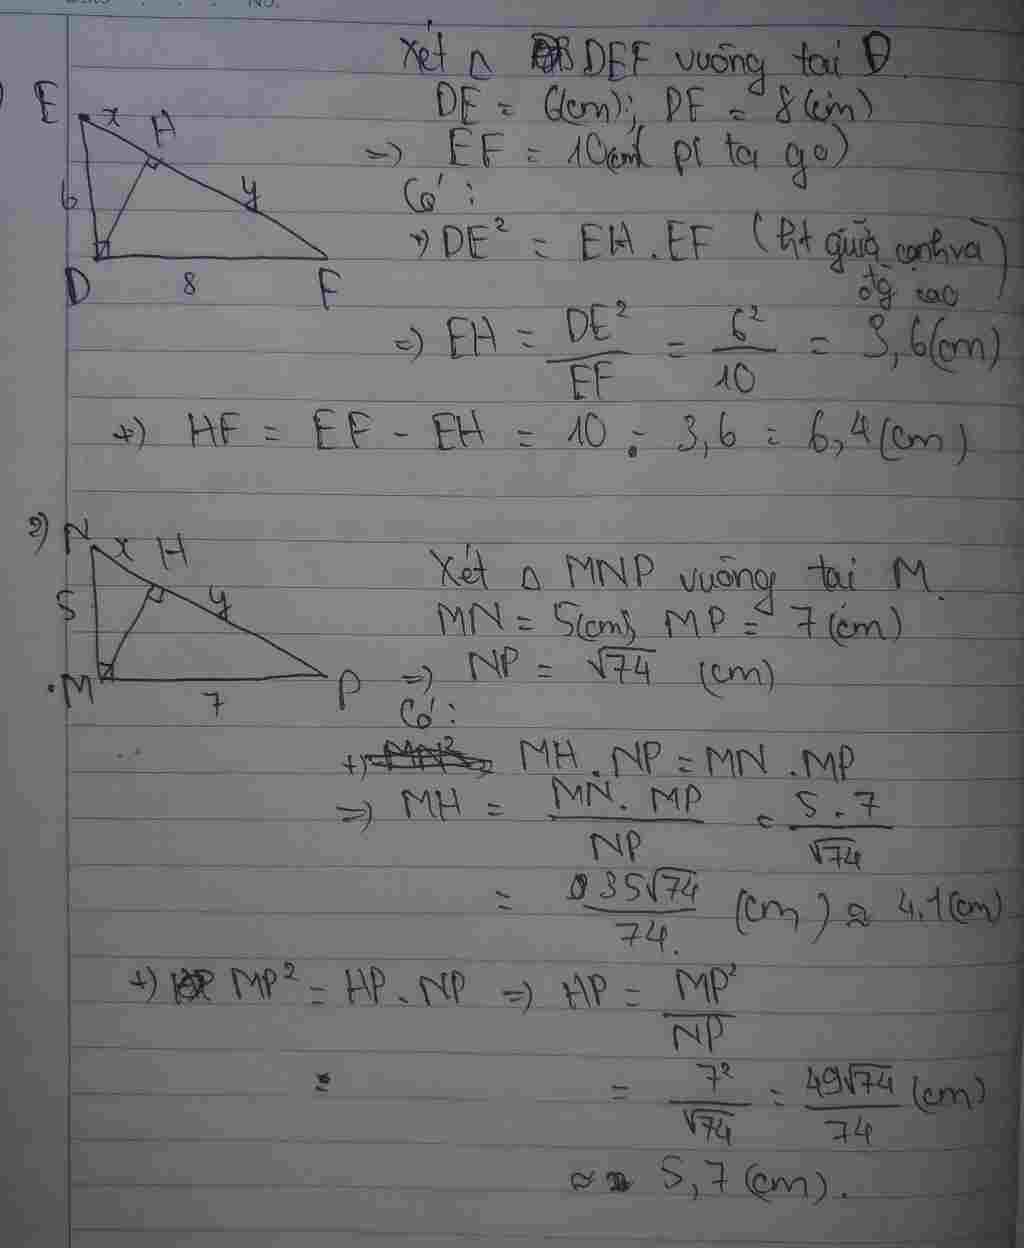 No.
Xét Δ DEF vuông tai D.
DE = 6(cm); DF = 8(cm)
=) EF = 10(cm( pi ta go)
Có :
+) DE² = EH . EF (ht giữa cạnh và đg cao)
=) EH = DE²/EF = 6²/10 = 3,6(cm)
+) HF = EF - EH = 10 - 3,6 = 6,4(cm)
E x H
6 y
D 8 F
2) N x H
5 y
M 7 P
Xét Δ MNP vuông tai M.
MN = 5(cm), MP = 7(cm)
=) NP = √74 (cm)
Có :
+) MH . NP = MN . MP
=) MH = MN . MP/NP = 5 . 7/√74
= 35√74/74 (cm) ≈ 4.1(cm)
+) MP² = HP . NP =) HP = MP²/NP
= 7²/√74 = 49√74/74 (cm)
≈ 5,7 (cm).